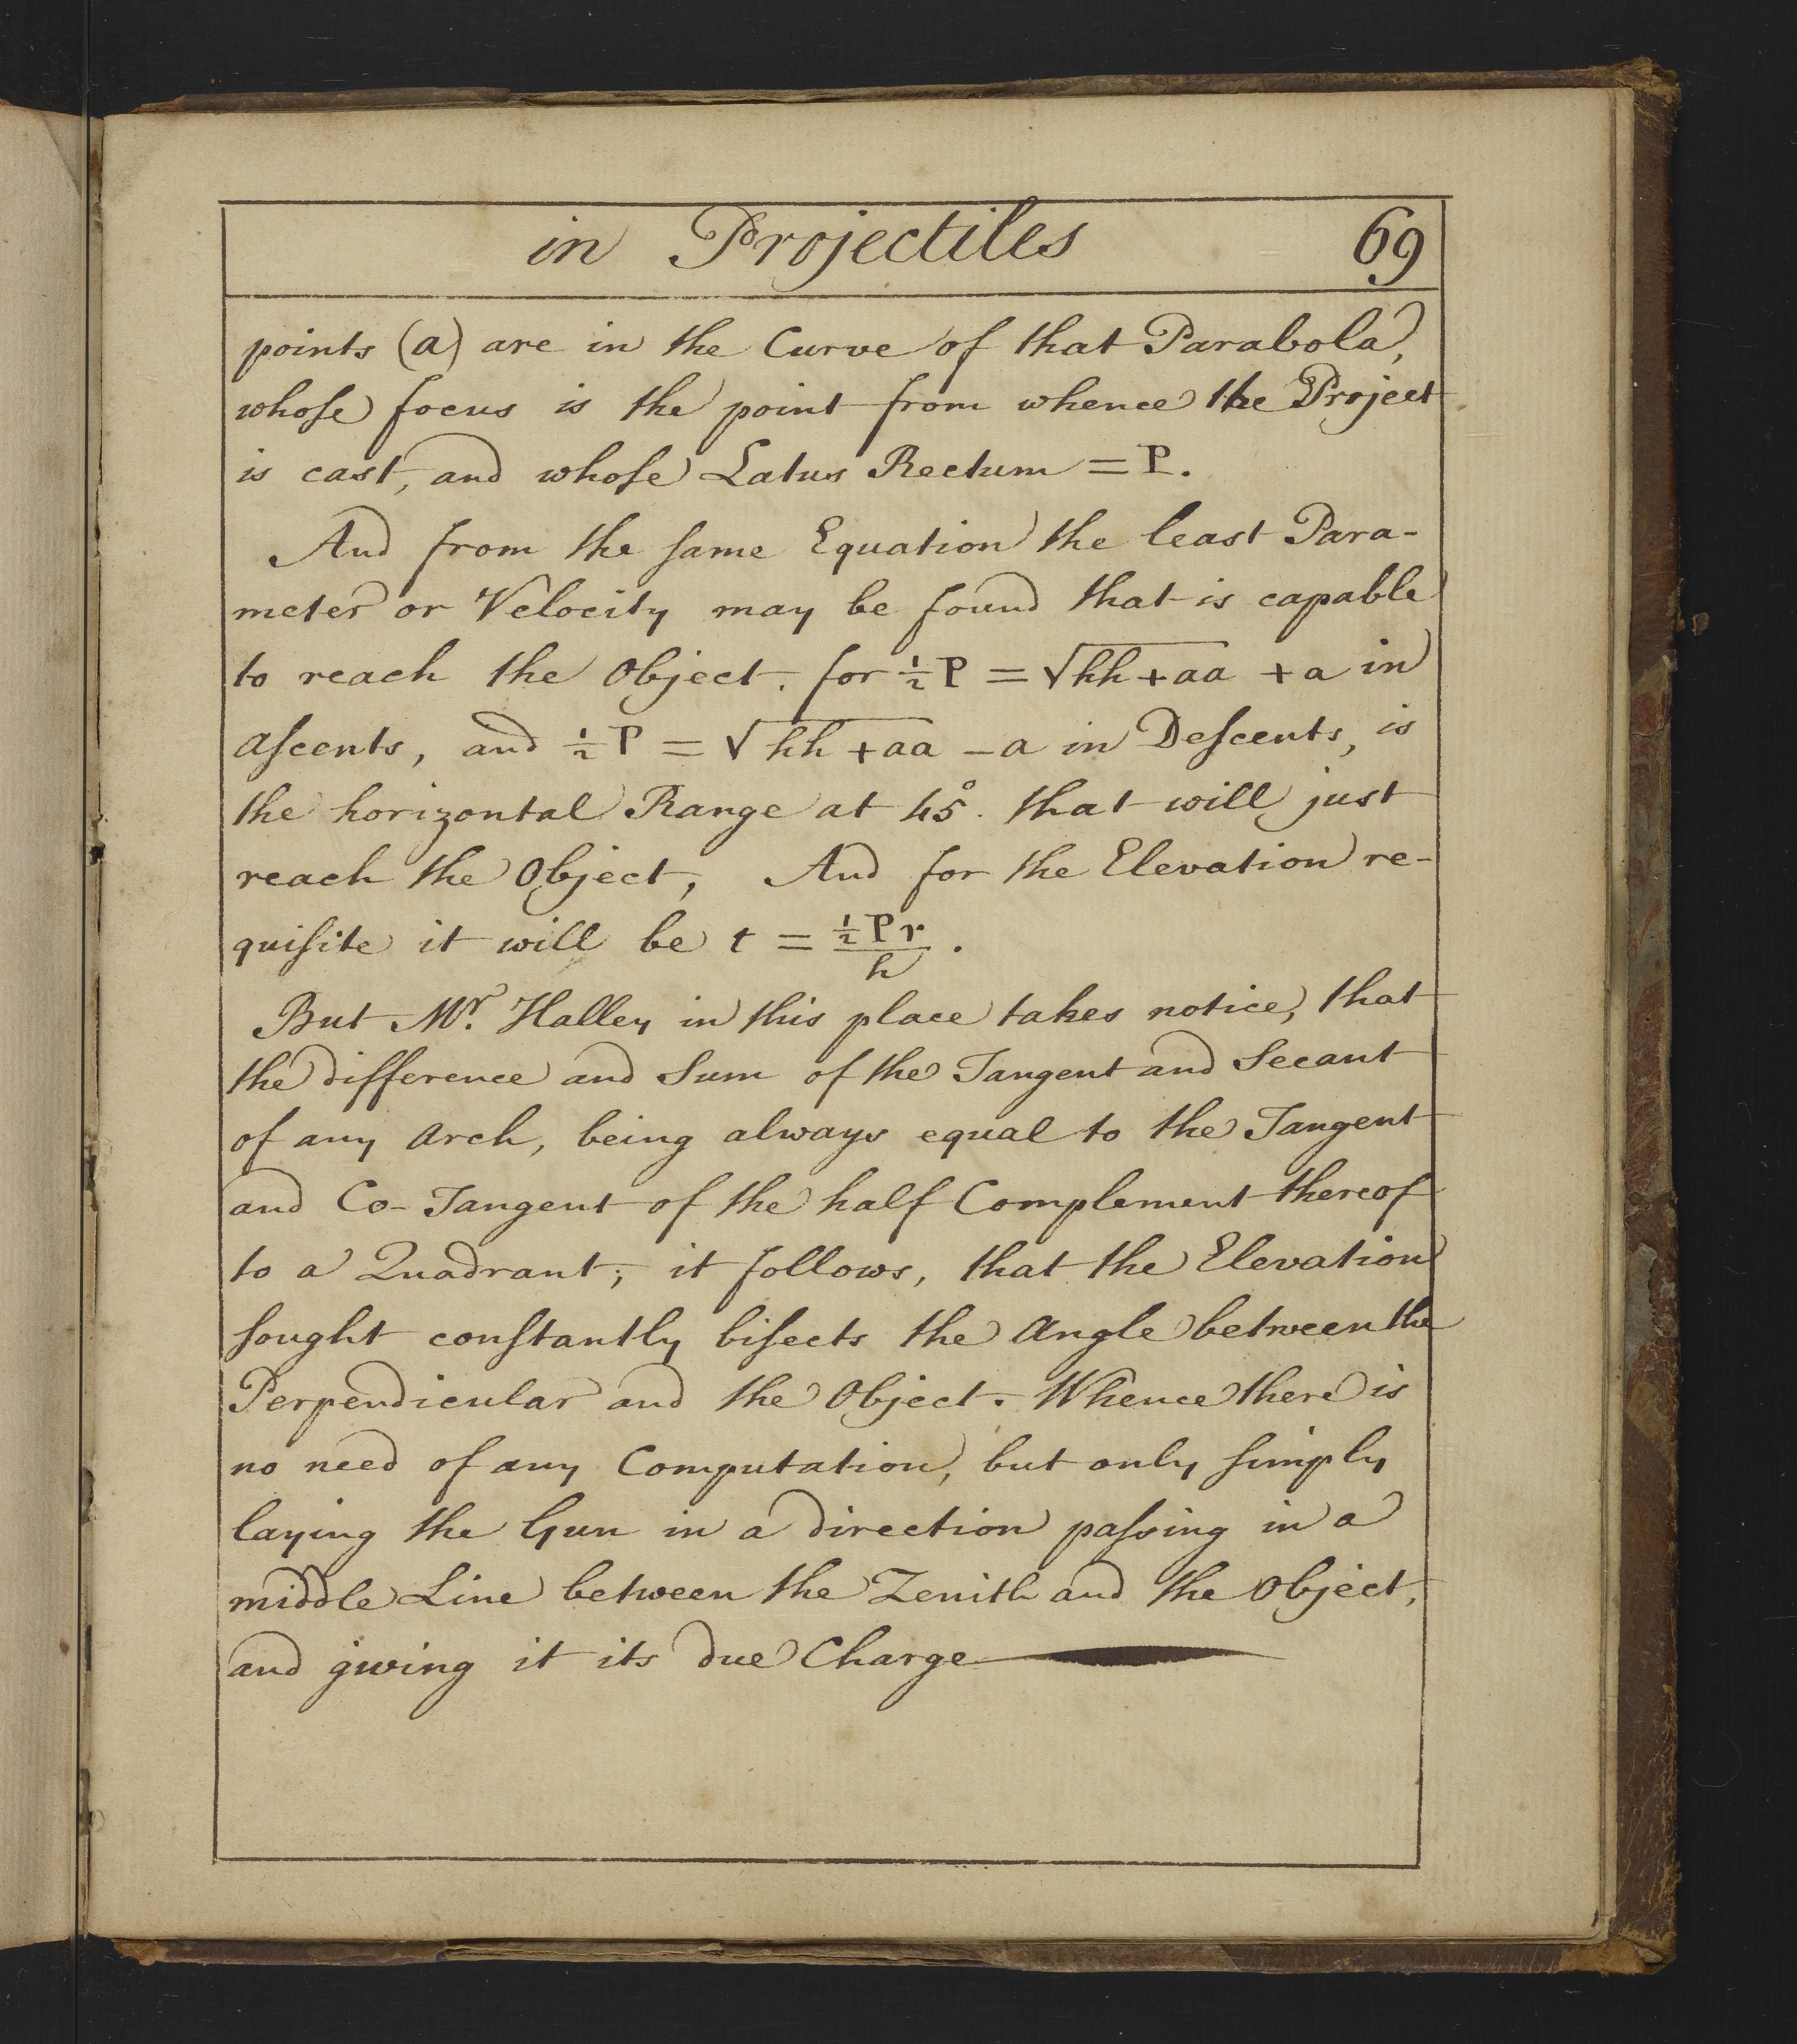 in Projectiles 69
points (a) are in the Curve of that Parabola,
whoſe focus is the point from whence the Project
is cast, and whoſe Latus Rectum = P.
And from the ſame Equation the least Para-
meter or Velocity may be found that is capable
to reach the Object. for ½P = √hh + aa + a in
aſcents, and ½P = √hh + aa - a in Deſcents, is
the horizontal Range at 45°. that will just
reach the Object, And for the Elevation re-
quiſite it will be t = ½Pr/h.
But Mr. Halley in this place takes notice, that
the difference and Sum of the Tangent and Secant
of any Arch, being always equal to the Tangent
and Co-Tangent of the half Complement thereof
to a Quadrant; it follows, that the Elevation
ſought conſtantly biſects the Angle between the
Perpendicular and the Object. Whence there is
no need of any Computation, but only ſimply
laying the Gun in a direction paſsing in a
middle Line between the Zenith and the Object,
and giving it its due Charge